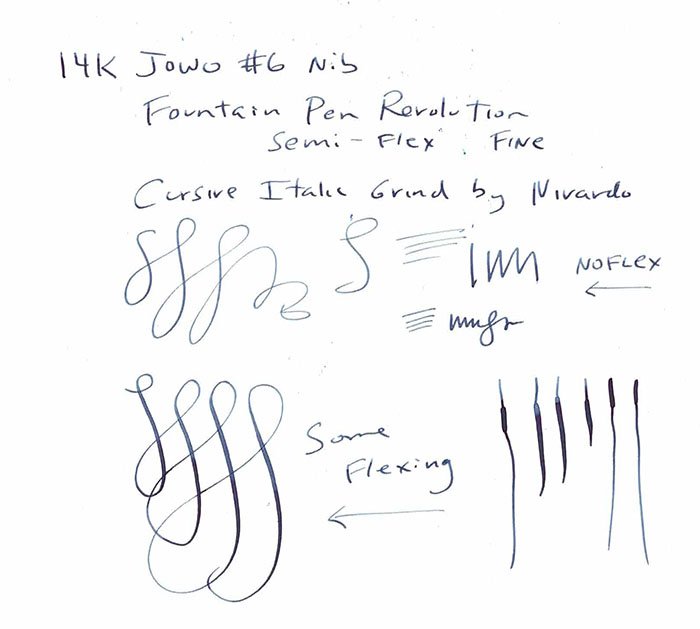 14K Jowo #6 Nib
Fountain Pen Revolution
Semi-Flex Fine
Cursive Italic Grind by Nivardo
NOFLEX
Some
Flexing